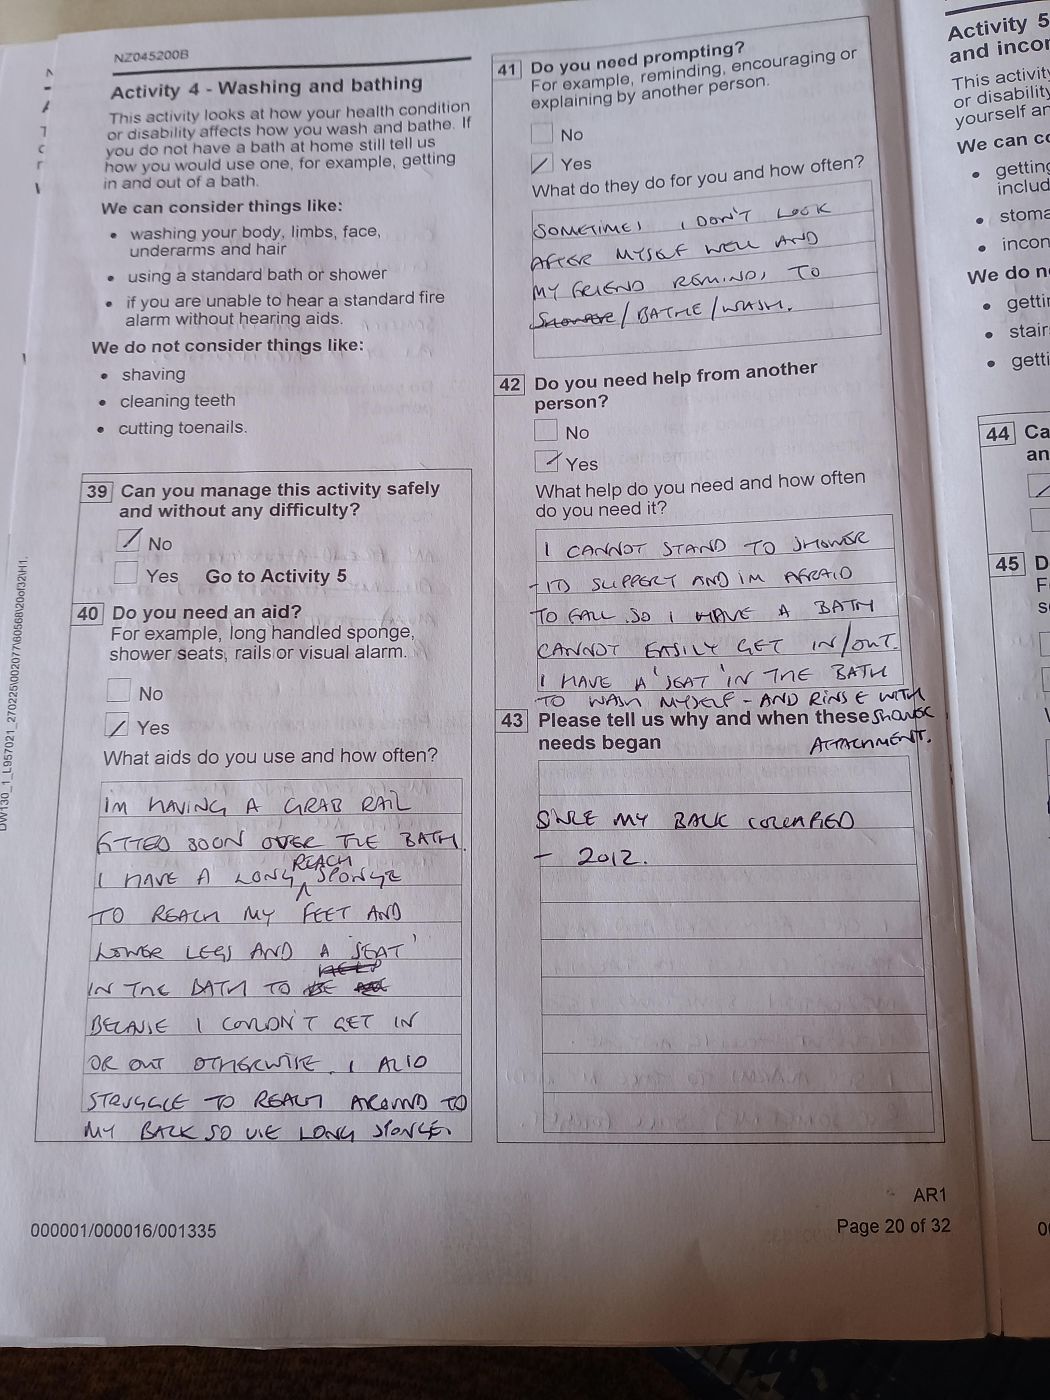 NZ045200B
Activity 4 - Washing and bathing
This activity looks at how your health condition
or disability affects how you wash and bathe. If
you do not have a bath at home still tell us
how you would use one, for example, getting
in and out of a bath.
We can consider things like:
• washing your body, limbs, face,
underarms and hair
• using a standard bath or shower
• if you are unable to hear a standard fire
alarm without hearing aids.
We do not consider things like:
• shaving
• cleaning teeth
• cutting toenails.
39 Can you manage this activity safely
and without any difficulty?
No
Yes Go to Activity 5
40 Do you need an aid?
For example, long handled sponge,
shower seats, rails or visual alarm.
No
Yes
What aids do you use and how often?
I'M HAVING A GRAB RAIL
FITTED SOON OVER THE BATH.
I HAVE A LONG REACH SPONGE
TO REACH MY FEET AND
LOWER LEGS AND A 'SEAT'
IN THE BATH TO
BECAUSE I COULDN'T GET IN
OR OUT OTHERWISE. I ALSO
STRUGGLE TO REACH AROUND TO
MY BACK SO USE LONG SPONGE.
41 Do you need prompting?
For example, reminding, encouraging or
explaining by another person.
No
Yes
What do they do for you and how often?
SOMETIMES I DON'T LOOK
AFTER MYSELF WELL AND
MY FRIEND REMINDS TO
/BATHE/WASH.
42 Do you need help from another
person?
No
Yes
What help do you need and how often
do you need it?
I CANNOT STAND TO SHOWER
- ITS SLIPPERY AND IM AFRAID
TO FALL SO I HAVE A BATH
CANNOT EASILY GET IN/OUT.
I HAVE A 'SEAT' IN THE BATH
TO WASH MYSELF - AND RINSE WITH
SHOWER
ATTACHMENT.
43 Please tell us why and when these
needs began
SINCE MY BACK COLLAPSED
- 2012.
AR1
000001/000016/001335
Page 20 of 32
DW130_1_L957021_270225\002077\60568\20of32\H1.
Activity 5
and
This activity
or disability
yourself
We can
• getting
•
•
We do
•
•
•
44
45